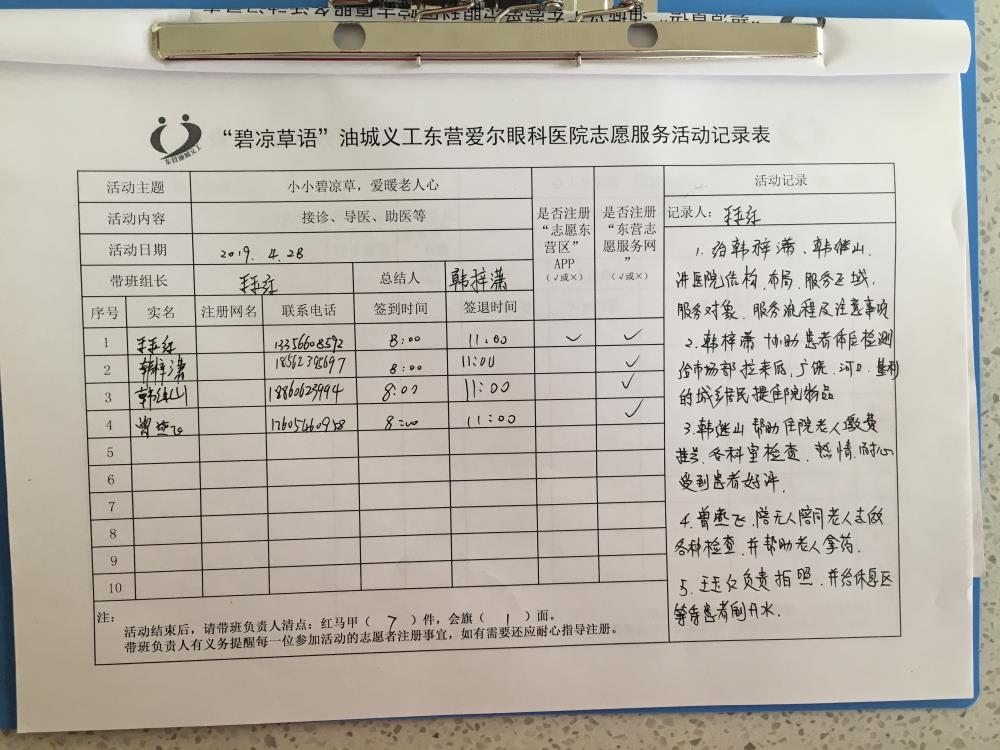 东营油城义工
“碧凉草语”油城义工东营爱尔眼科医院志愿服务活动记录表
活动主题 小小碧凉草，爱暖老人心
活动内容 接诊、导医、助医等
活动日期 2019. 4. 28
带班组长 总结人 韩梓潇
是否注册“志愿东营区”APP（√或×）
是否注册“东营志愿服务网”（√或×）
序号 实名 注册网名 联系电话 签到时间 签退时间
1 13356608592 8:00 11:00 √ √
2 韩梓潇 18562798697 8:00 11:00 √
3 韩继山 18860623994 8:00 11:00 √
4 曾燕飞 8:00 11:00 √
5
6
7
8
9
10
活动记录
记录人：
1. 给韩梓潇、韩继山
讲医院结构、布局、服务区域、
服务对象、服务流程及注意事项
2. 韩梓潇 协助患者体后检测
给市场部拉来的广饶、河口、垦利
的城乡居民提住院物品
3. 韩继山 帮助住院老人缴费
挂号、各科室检查、热情、耐心
受到患者好评.
4. 曾燕飞、陪无人陪同老人去做
各种检查，并帮助老人拿药.
5. 负责拍照、并给休息区
等待患者倒开水.
注：
活动结束后，请带班负责人清点：红马甲（ 7 ）件，会旗（ 1 ）面。
带班负责人有义务提醒每一位参加活动的志愿者注册事宜，如有需要还应耐心指导注册。